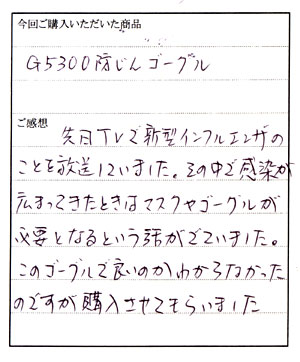 今回ご購入いただいた商品
G5300防じんゴーグル
ご感想
先日TVで新型インフルエンザの
ことを放送していました。その中で感染が
広まってきたときはマスクやゴーグルが
必要となるという話がでていました。
このゴーグルで良いのかわからなかった
のですが購入させてもらいました